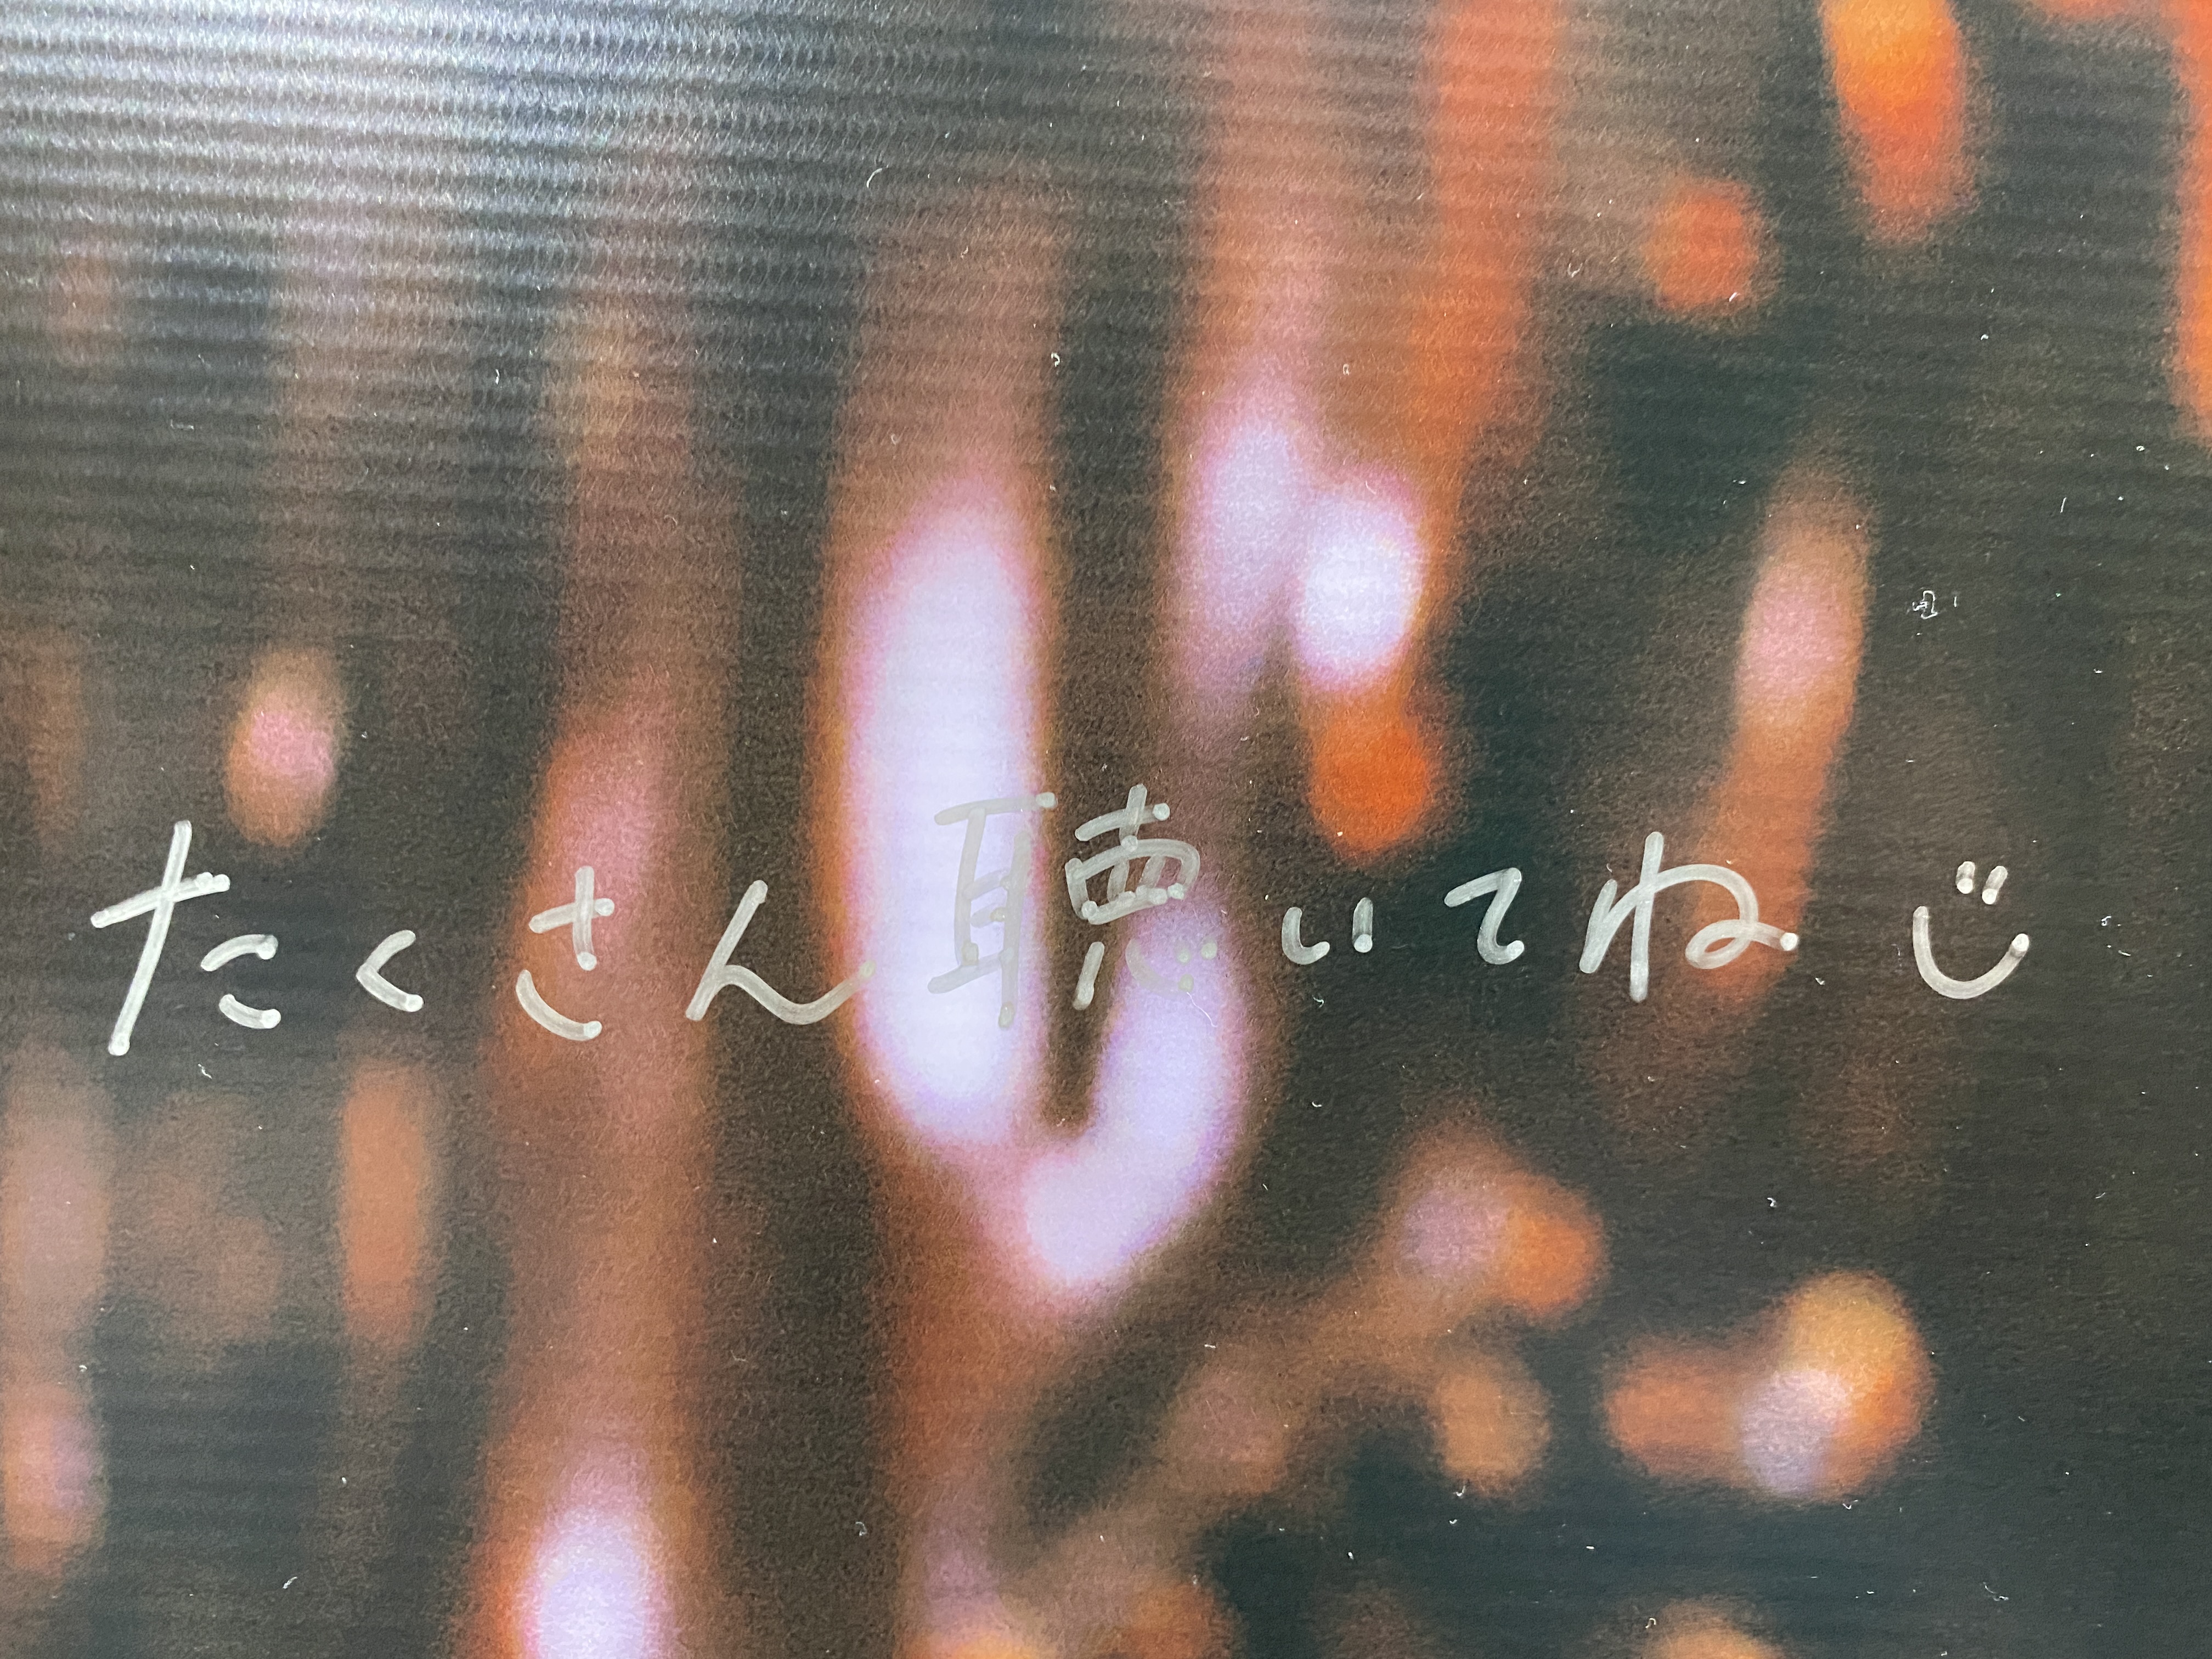 たくさん聴いてね